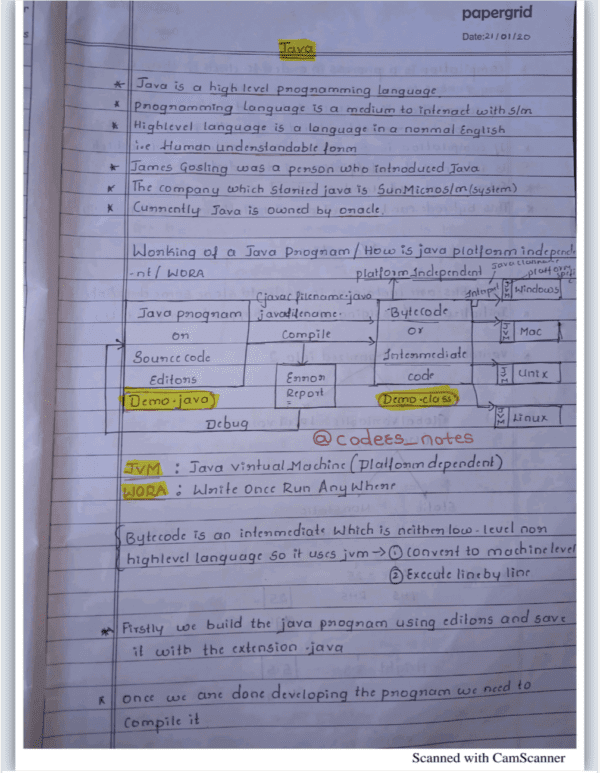 papergrid
Date:21/01/20
Java
* Java is a high level programming language
* Programming language is a medium to interact with s/m
* Highlevel language is a language in a normal English
i.e Human understandable form
* James Gosling was a person who introduced Java
* The company which started java is SunMicros/m(system)
* Currently Java is owned by oracle
Working of a Java Program/How is java platform independe
-nt/WORA
platform Independent
platform
Java program
or
Sourcecode
Editors
Demo.java
(javac filename.java
java filename.
Compile
Error
Report
Debug
Bytecode
or
Intermediate
code
Demo.class
Windows
JVM Mac
JVM Unix
JVM Linux
@codees_notes
JVM : Java Virtual Machine (Platform dependent)
WORA : Write Once Run Any Where
Bytecode is an intermediate which is neither low-level nor
highlevel language so it uses jvm → ① Convert to machine level
② Execute line by line
* Firstly we build the java program using editors and save
it with the extension .java
* once we are done developing the program we need to
compile it
Scanned with CamScanner